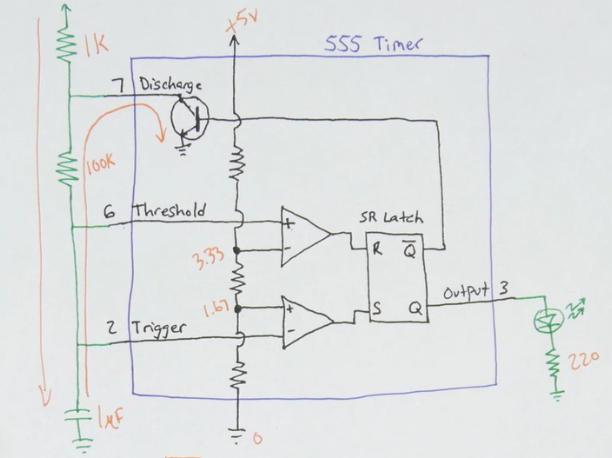 +5V
555 Timer
1K
7 Discharge
100K
6 Threshold
SR Latch
+
-
R Q̅
3.33
1.67
Output 3
+
-
S Q
2 Trigger
220
1µF
0